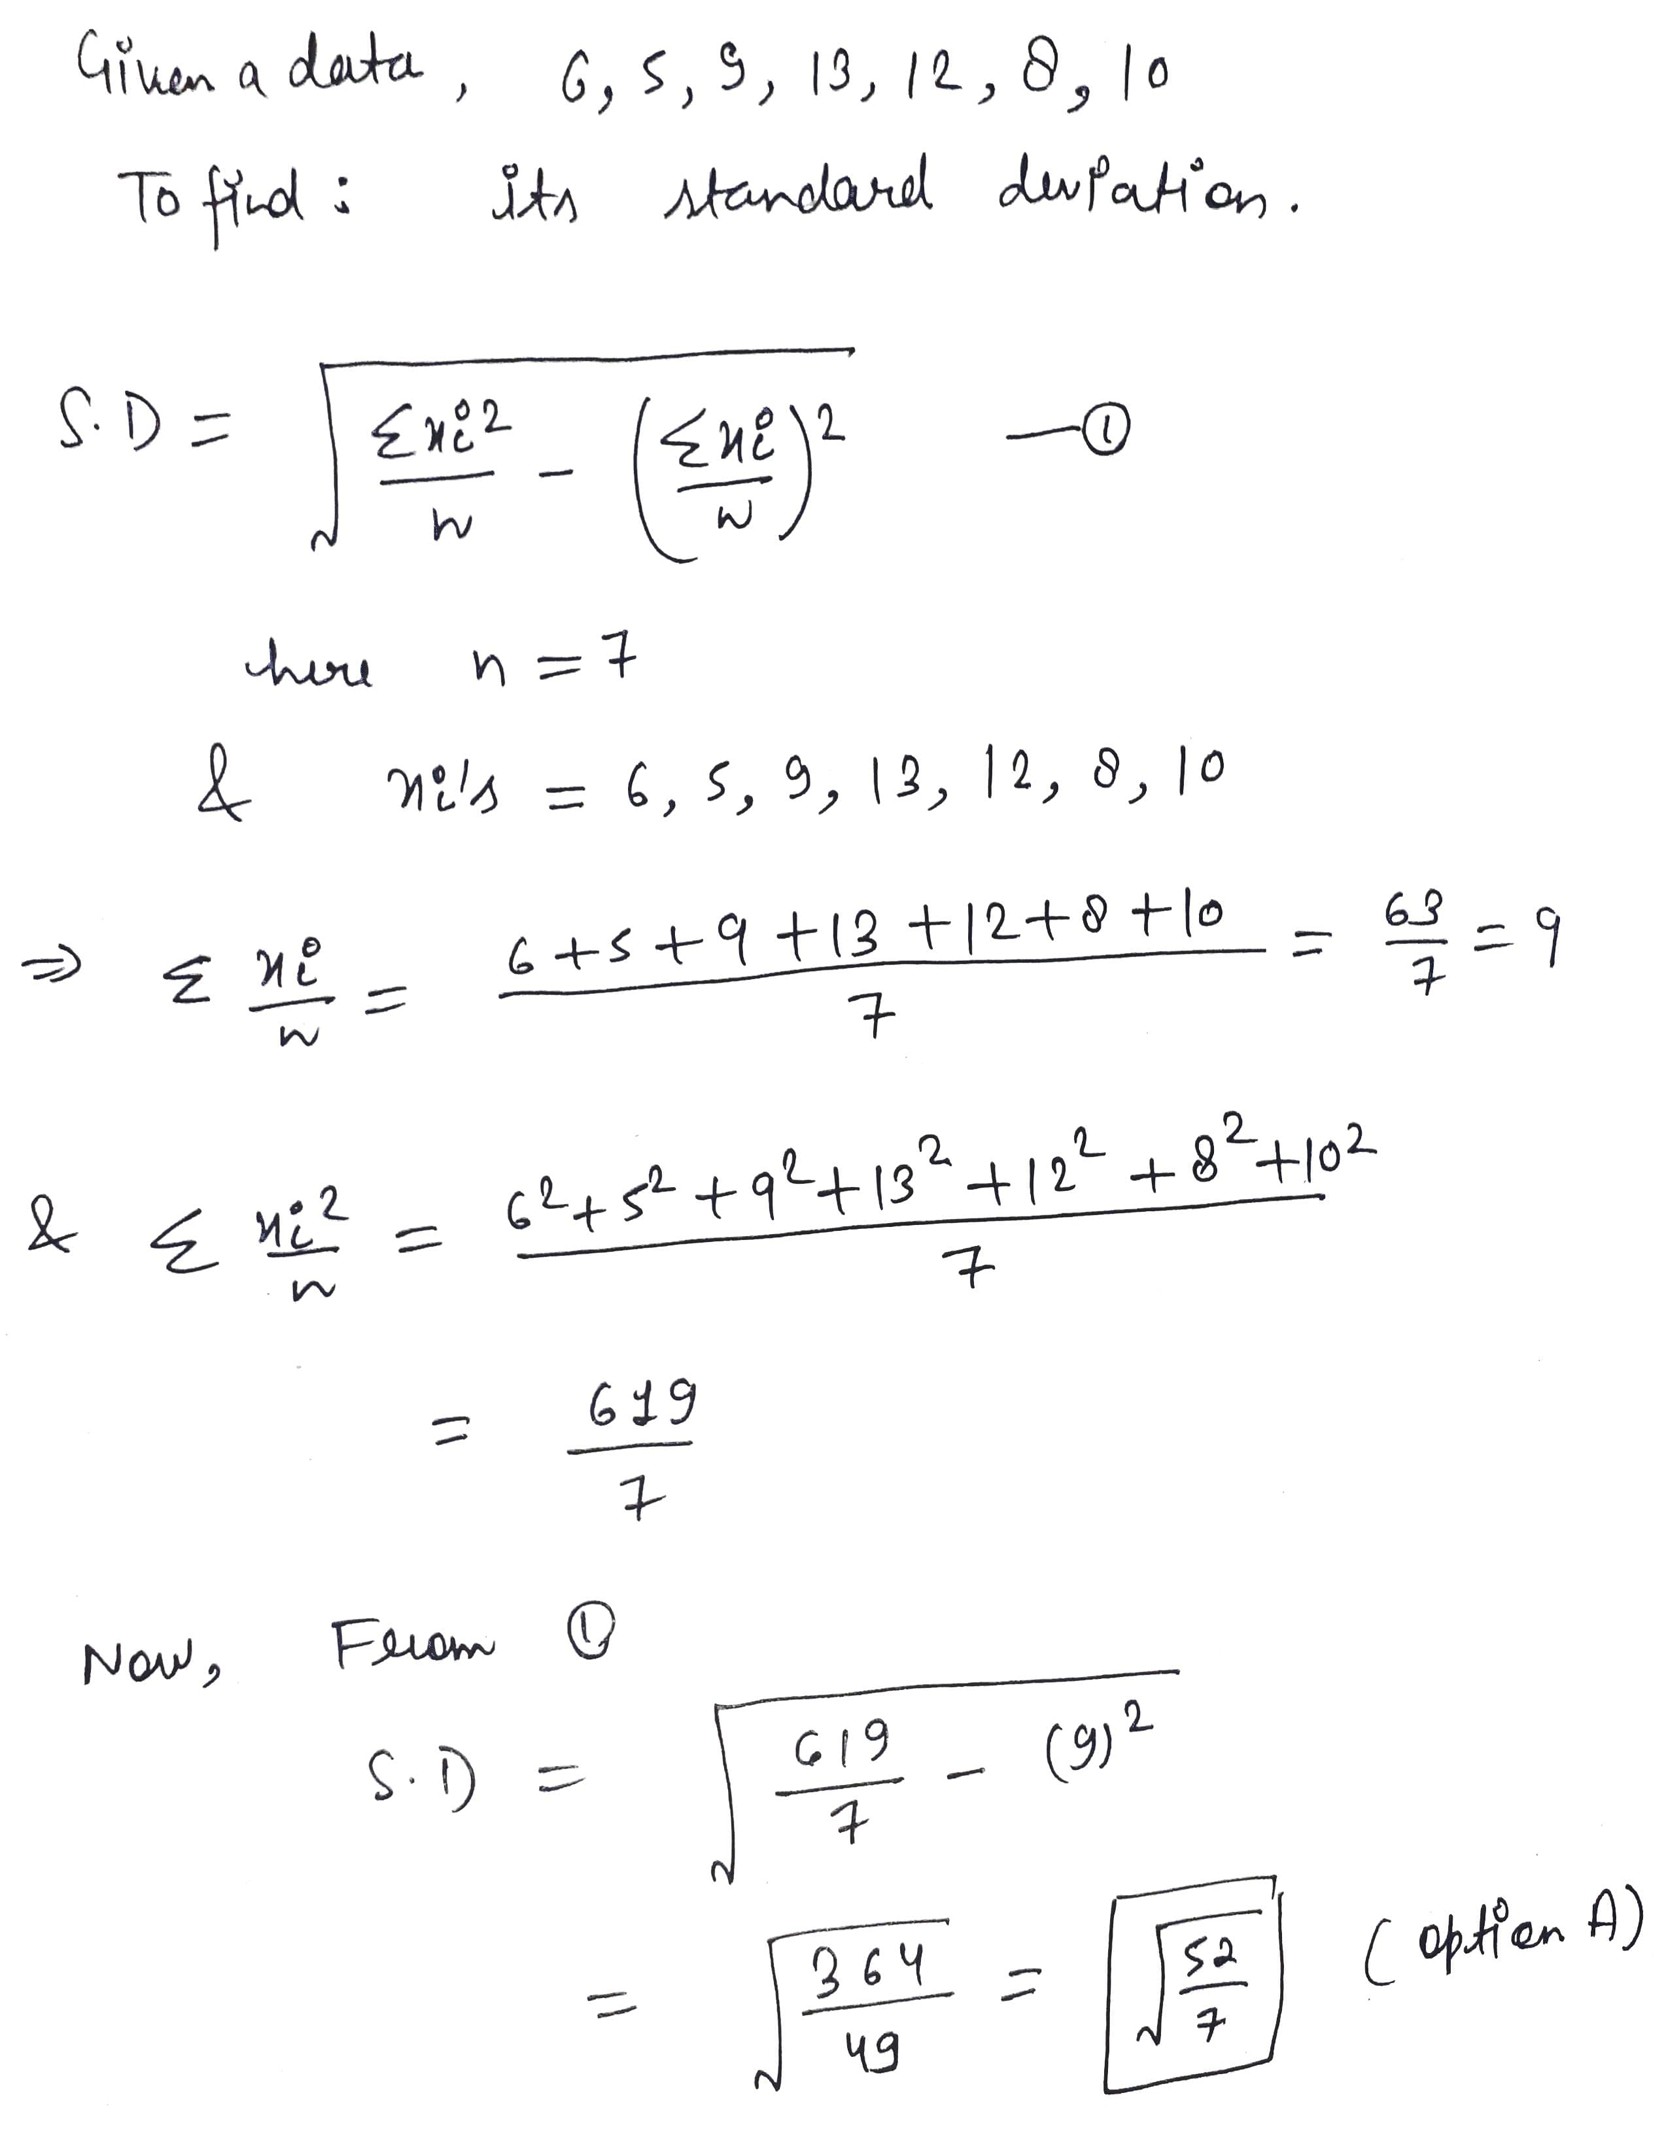 Given a data, 6, 5, 9, 13, 12, 8, 10
To find: its standard deviation.
S.D = √(Σxi²/n - (Σxi/n)²) —①
here n = 7
& xi's = 6, 5, 9, 13, 12, 8, 10
⇒ Σ xi/n = (6+5+9+13+12+8+10)/7 = 63/7 = 9
& Σ xi²/n = (6²+5²+9²+13²+12²+8²+10²)/7
= 619/7
Now, From ①
S.D = √(619/7 - (9)²)
= √(364/49) = √(52/7) (option A)